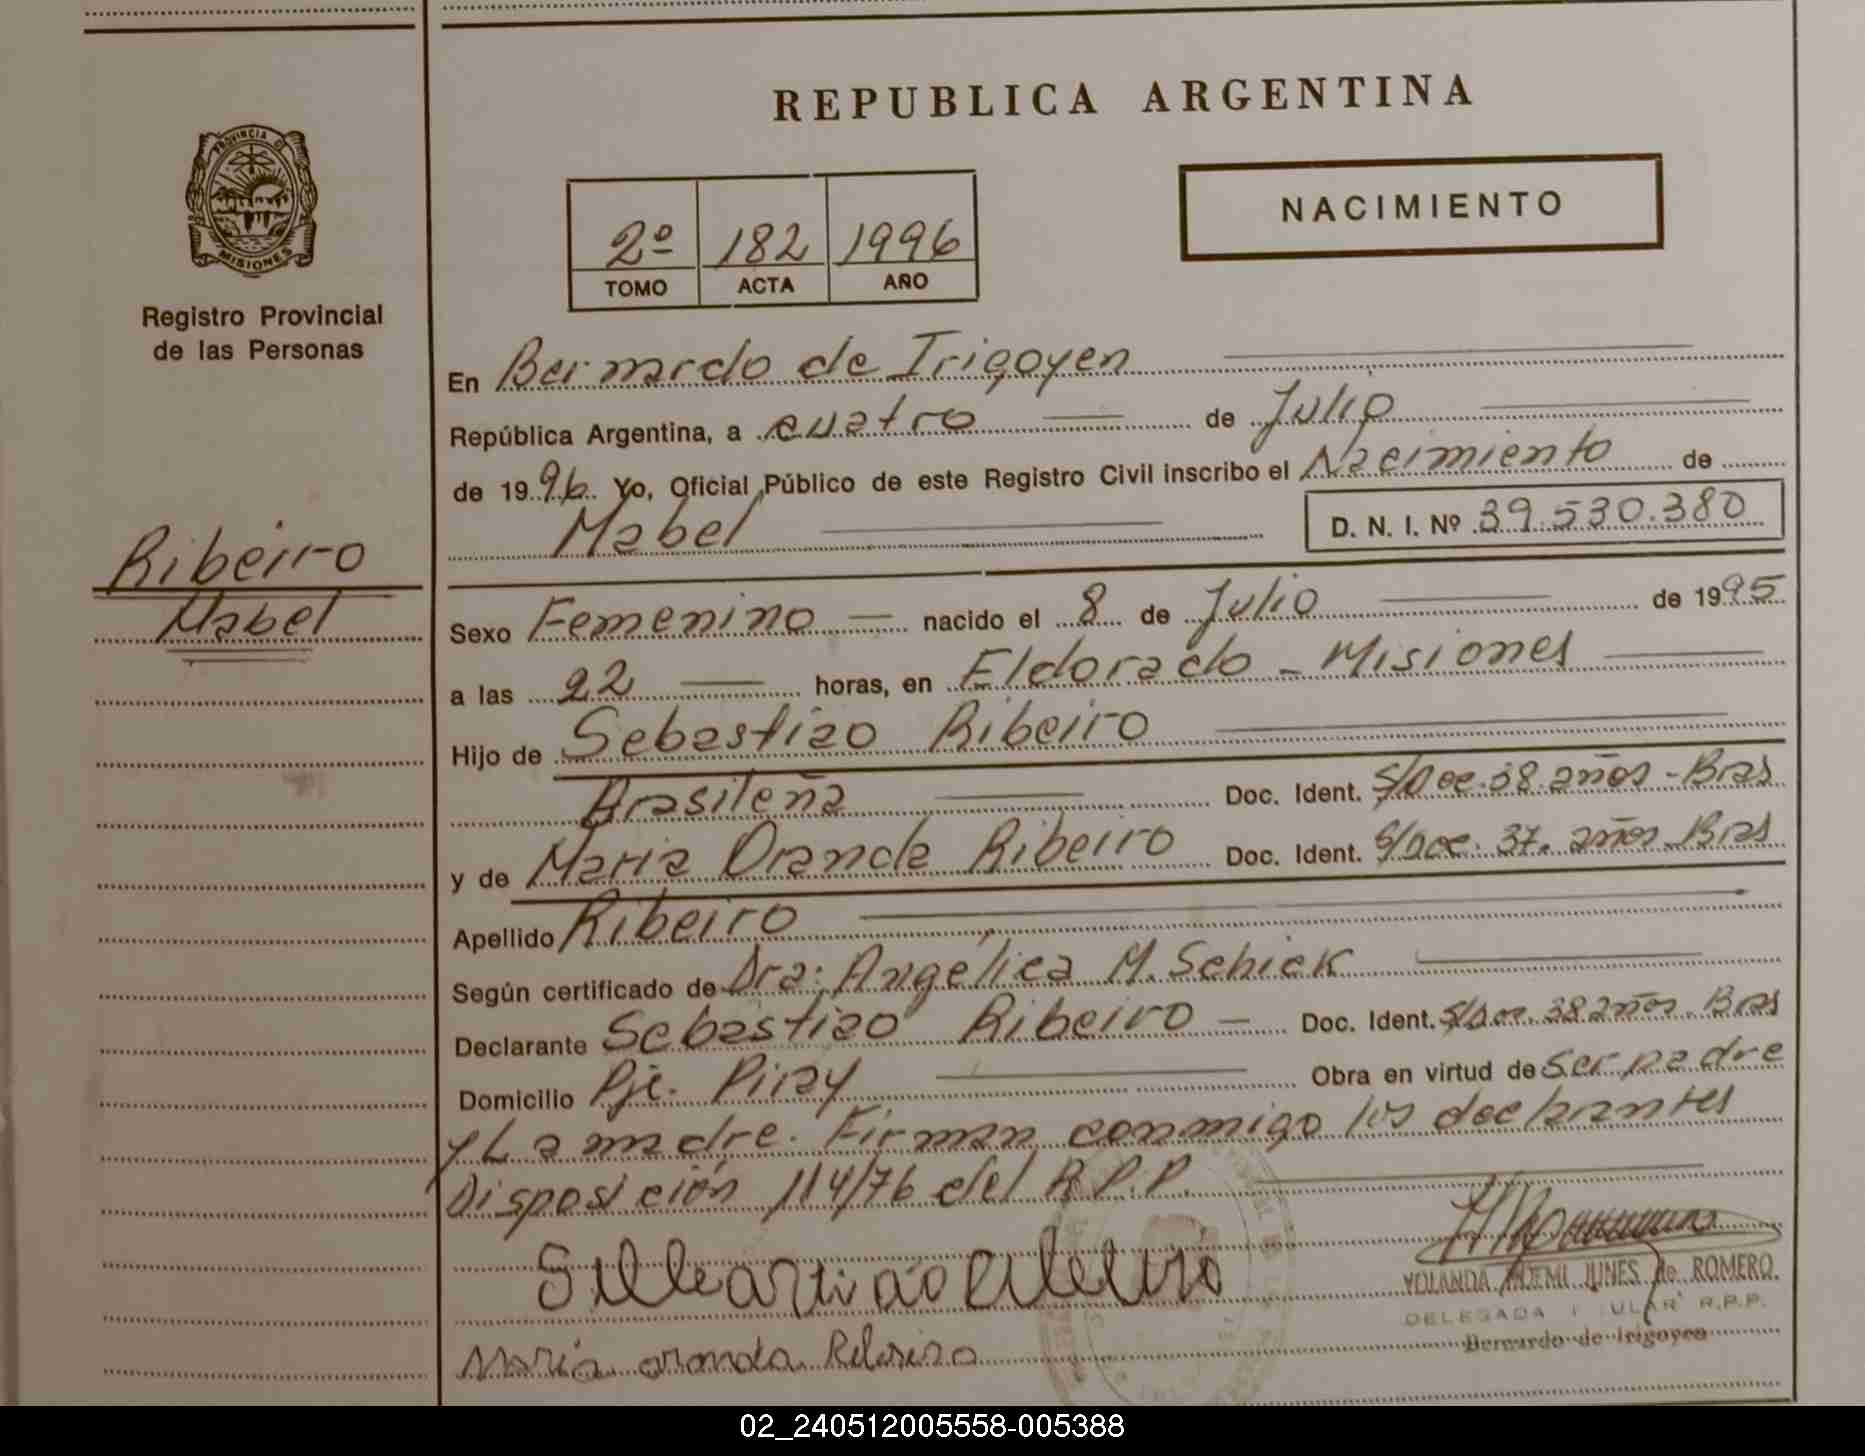 REPUBLICA ARGENTINA
PROVINCIA DE
MISIONES
Registro Provincial
de las Personas
NACIMIENTO
2º 182 1996
TOMO ACTA AÑO
En Bernardo de Irigoyen
República Argentina, a cuatro de Julio
de 1996. Yo, Oficial Público de este Registro Civil inscribo el Nacimiento de
Mabel D. N. I. Nº 39.530.380
Ribeiro
Mabel
Sexo Femenino nacido el 8 de Julio de 1995
a las 22 horas, en Eldorado - Misiones
Hijo de Sebastiao Ribeiro
Brasileña Doc. Ident. S/Doc. 38 años - Bras
y de Maria Oranda Ribeiro Doc. Ident. S/Doc. 37. años Bras
Apellido Ribeiro
Según certificado de Dra: Angélica M. Schick
Declarante Sebastiao Ribeiro - Doc. Ident. S/Doc. 38 años. Bras
Domicilio Pje. Piray Obra en virtud de Ser padre
y La madre. Firman conmigo los declarantes
Disposición 114/76 del R.P.P.
Maria oranda Ribeiro
YOLANDA NOEMI JUNES de ROMERO
DELEGADA R.P.P.
Bernardo de Irigoyen
02_240512005558-005388